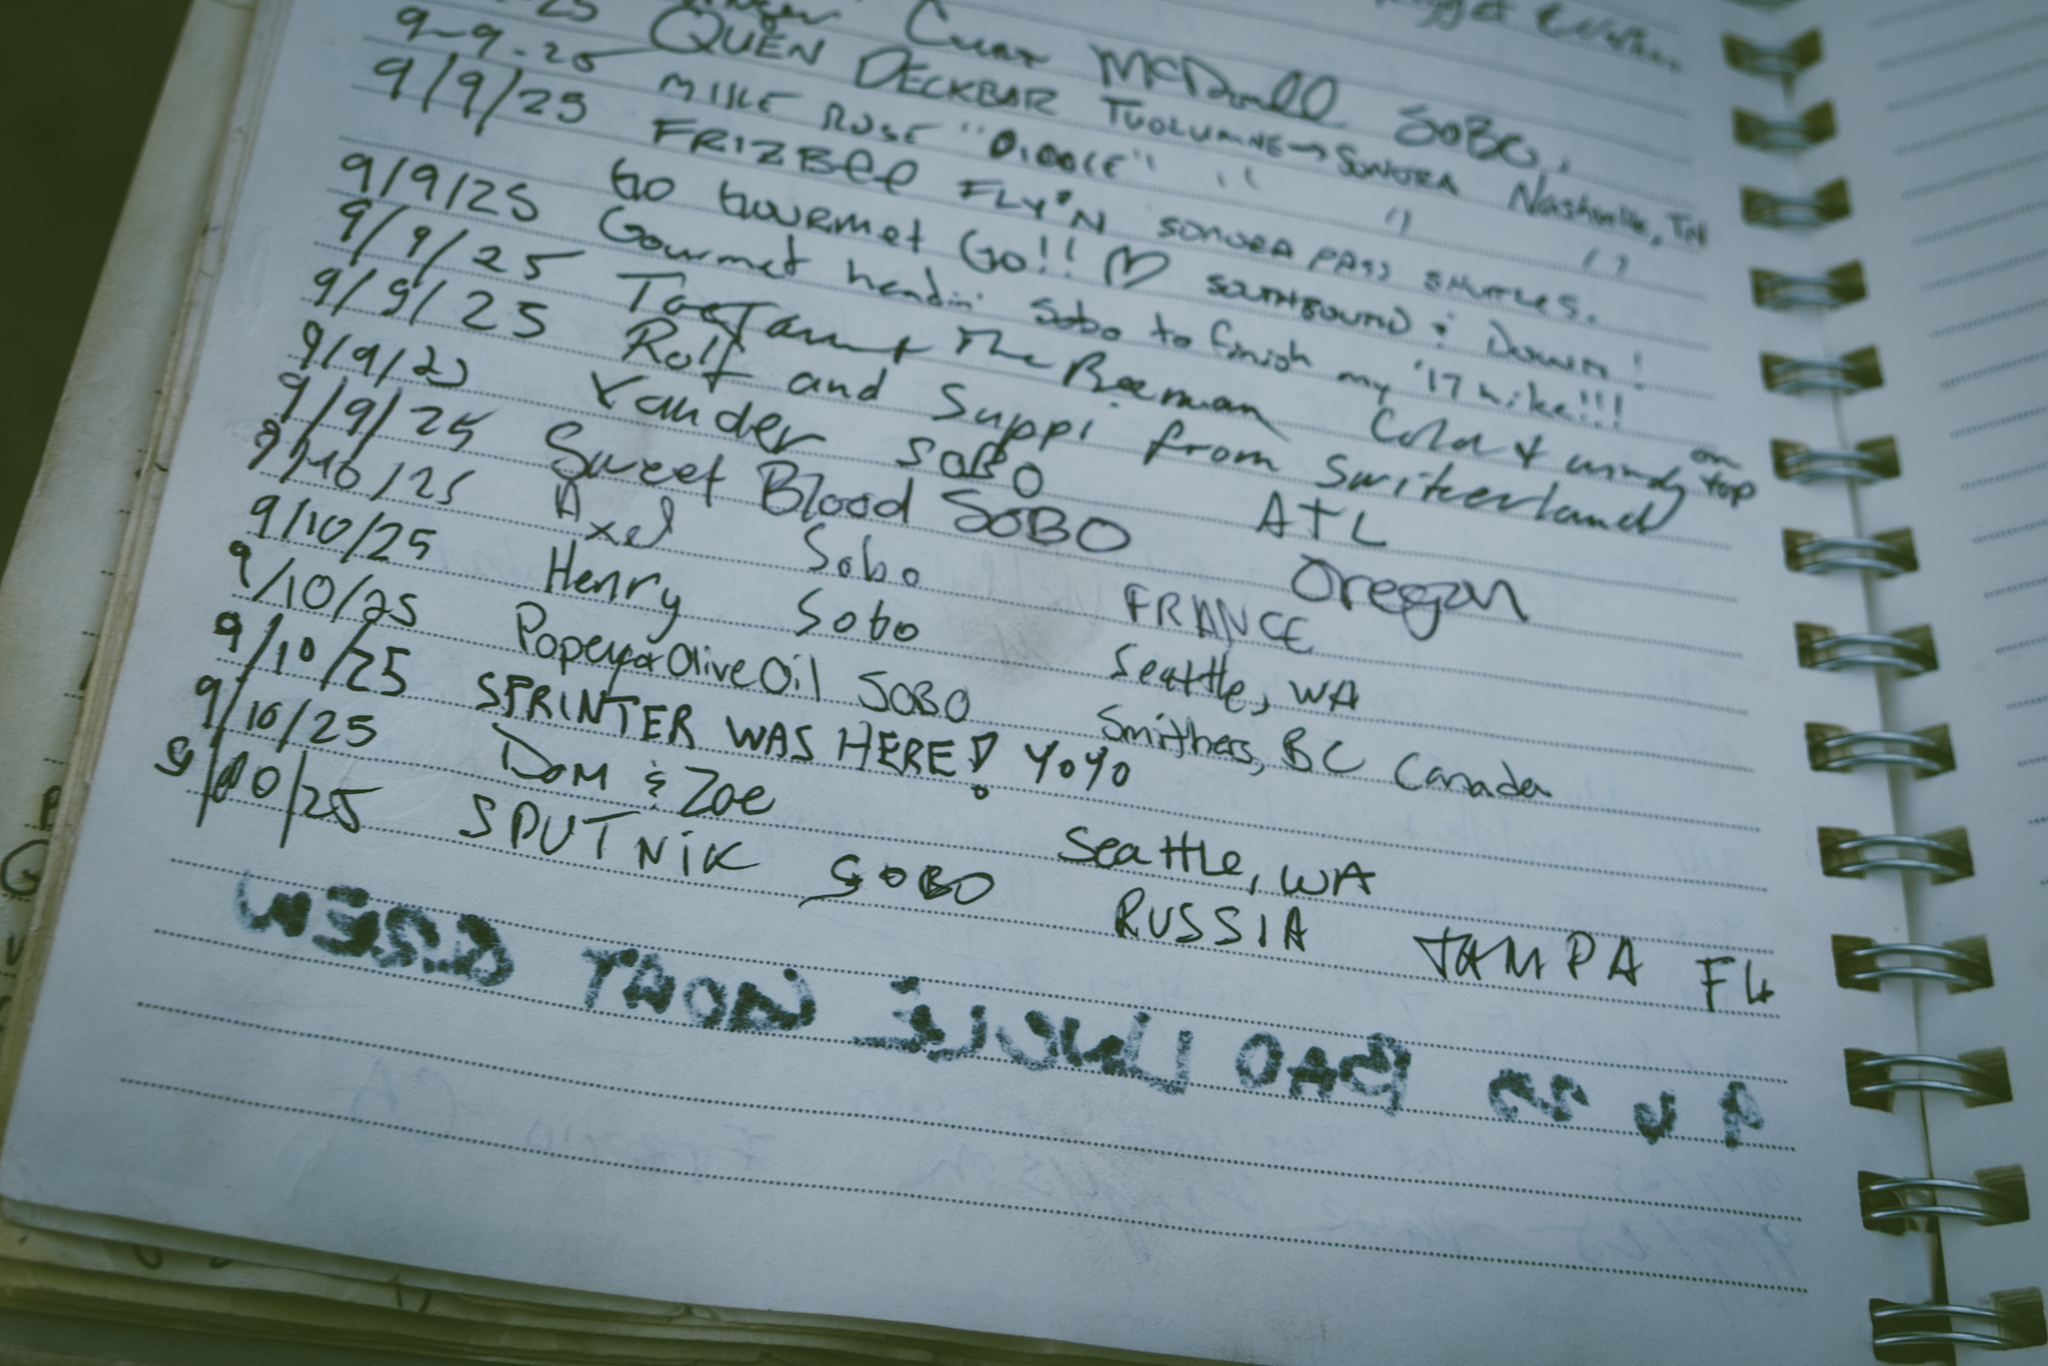 McDonall SOBO.
9-9-25 QUEN DECKBAR TUOLUMNE → SONORA Nashville, TN
9/9/25 MIKE ROSE " " "
FRIZBEE FLY'N SONORA PASS SHUTTLES.
9/9/25 GO GOURMET GO!! ♡ SOUTHBOUND & DOWN!
9/9/25 Gourmet headin' Sobo to finish my '17 hike!!!
9/9/25 The Beeman Cold & windy on top
9/9/25 Rolf and Suppi from Switzerland
9/9/25 Xander SOBO ATL
9/10/25 Sweet Blood SOBO Oregon
9/10/25 Axel Sobo FRANCE
9/10/25 Henry Sobo Seattle, WA
9/10/25 Popeye & Olive Oil SOBO Smithers, BC Canada
9/10/25 SPRINTER WAS HERE! YOYO
9/10/25 Dom & Zoe Seattle, WA
9/10/25 SPUTNIK SOBO RUSSIA TAMPA FL